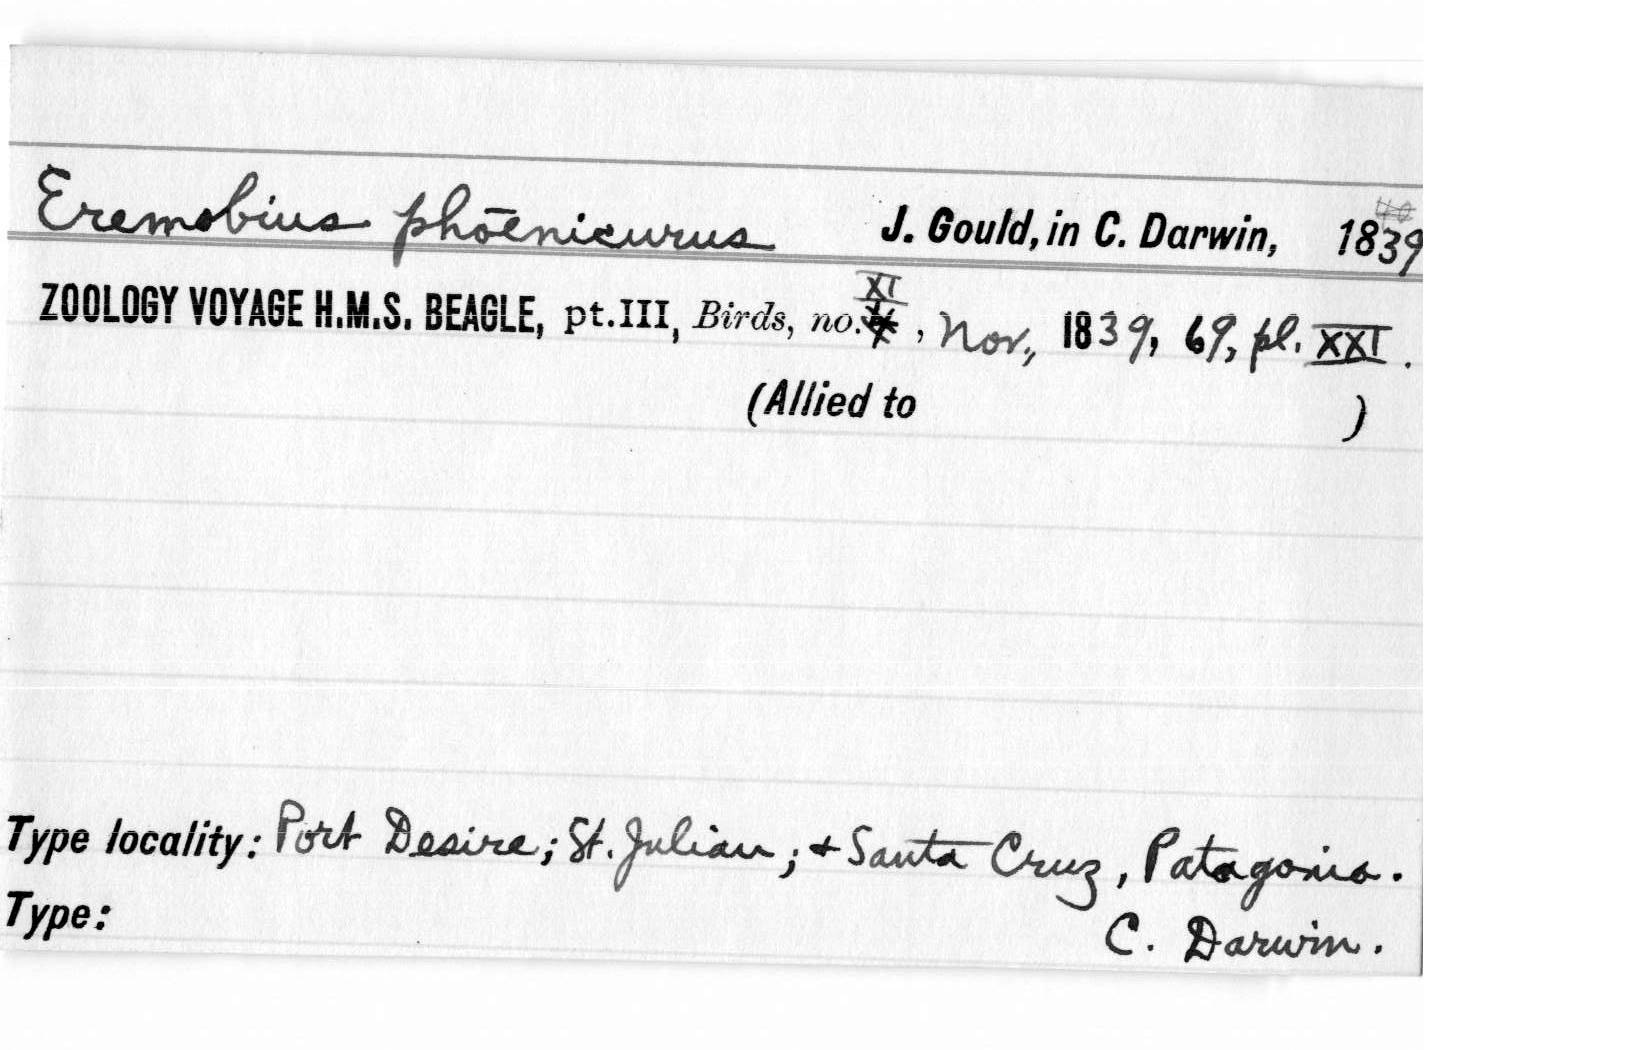 Eremobius phōenicurus J. Gould, in C. Darwin, 1839
ZOOLOGY VOYAGE H.M.S. BEAGLE, pt.III, Birds, no. XI, Nov., 1839, 69, pl. XXI.
(Allied to )
Type locality: Port Desire; St. Julian; + Santa Cruz, Patagonia.
Type: C. Darwin.